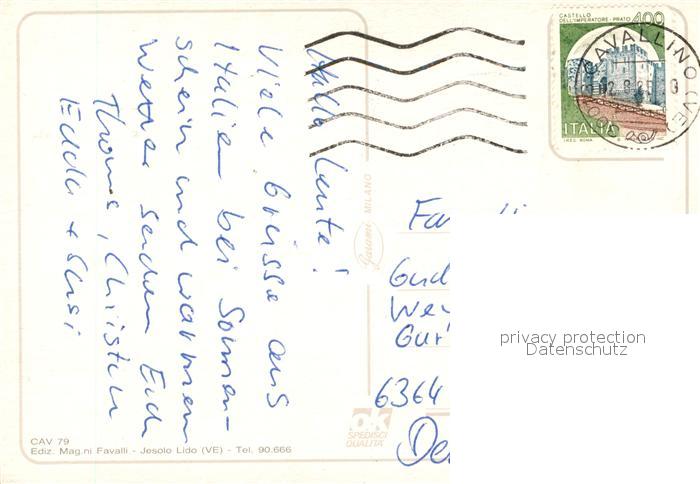 Hallo Leute!
Viele Grüsse aus
Italien bei Sonnen-
schein und warmen
Wetter senden Euch
Thomas, Christin
Edda + Susi
CASTELLO
DELL'IMPERATORE - PRATO
400
ITALIA
I.P.Z.S. ROMA
CAVALLINO (VE)
MILANO
Fa
Gud
We
Gur
6364
De
privacy protection
Datenschutz
OK
SPEDISCI
QUALITÀ
CAV 79
Ediz. Mag.ni Favalli - Jesolo Lido (VE) - Tel. 90.666